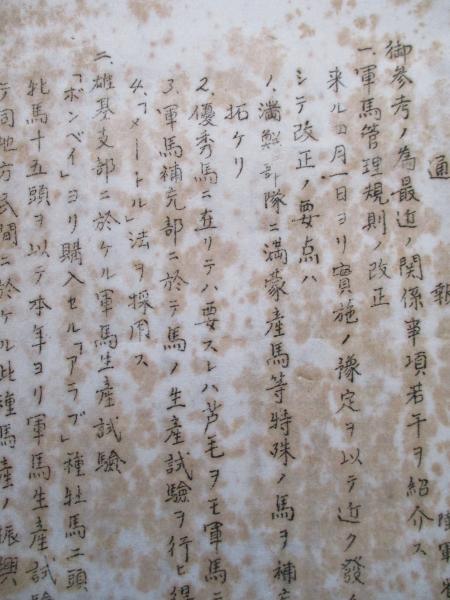 通報
陸軍
御参考ノ為最近ノ関係事項若干ヲ紹介ス
一、軍馬管理規則ノ改正
来ル四月一日ヨリ實施ノ豫定ヲ以テ近ク發
シテ改正ノ要点ハ
1、満鮮部隊ニ満蒙産馬等特殊ノ馬ヲ補充
拓ケリ
2、優秀馬ニ在リテハ要スレハ芦毛ヲモ軍馬ニ
3、軍馬補充部ニ於テ馬ノ生産試驗ヲ行ヒ得
4、「メートル」法ヲ採用ス
二、雄基支部ニ於ケル軍馬生産試驗
「ボンベイ」ヨリ購入セル「アラブ」種牡馬二頭
牝馬十五頭ヲ以テ本年ヨリ軍馬生産試驗
テ同地方民間ニ於ケル此種馬産ノ振興